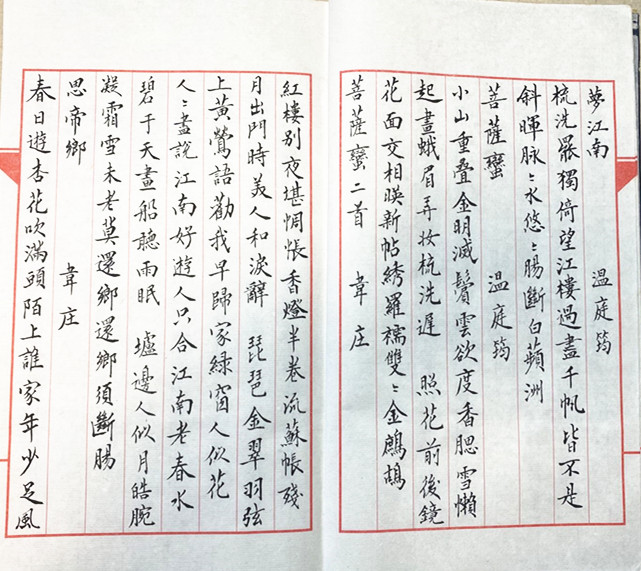 夢江南 溫庭筠
梳洗罷獨倚望江樓過盡千帆皆不是
斜暉脉〻水悠〻腸斷白蘋洲
菩薩蠻 溫庭筠
小山重疊金明滅鬢雲欲度香腮雪懶
起畫蛾眉弄妝梳洗遲 照花前後鏡
花面交相暎新帖綉羅襦雙〻金鷓鴣
菩薩蠻二首 韋庄
紅樓別夜堪惆悵香燈半卷流蘇帳殘
月出門時美人和淚辭 琵琶金翠羽弦
上黃鶯語勸我早歸家綠窗人似花
人〻盡說江南好遊人只合江南老春水
碧于天畫船聽雨眠 壚邊人似月皓腕
凝霜雪未老莫還鄉還鄉須斷腸
思帝鄉 韋庄
春日遊杏花吹滿頭陌上誰家年少足風